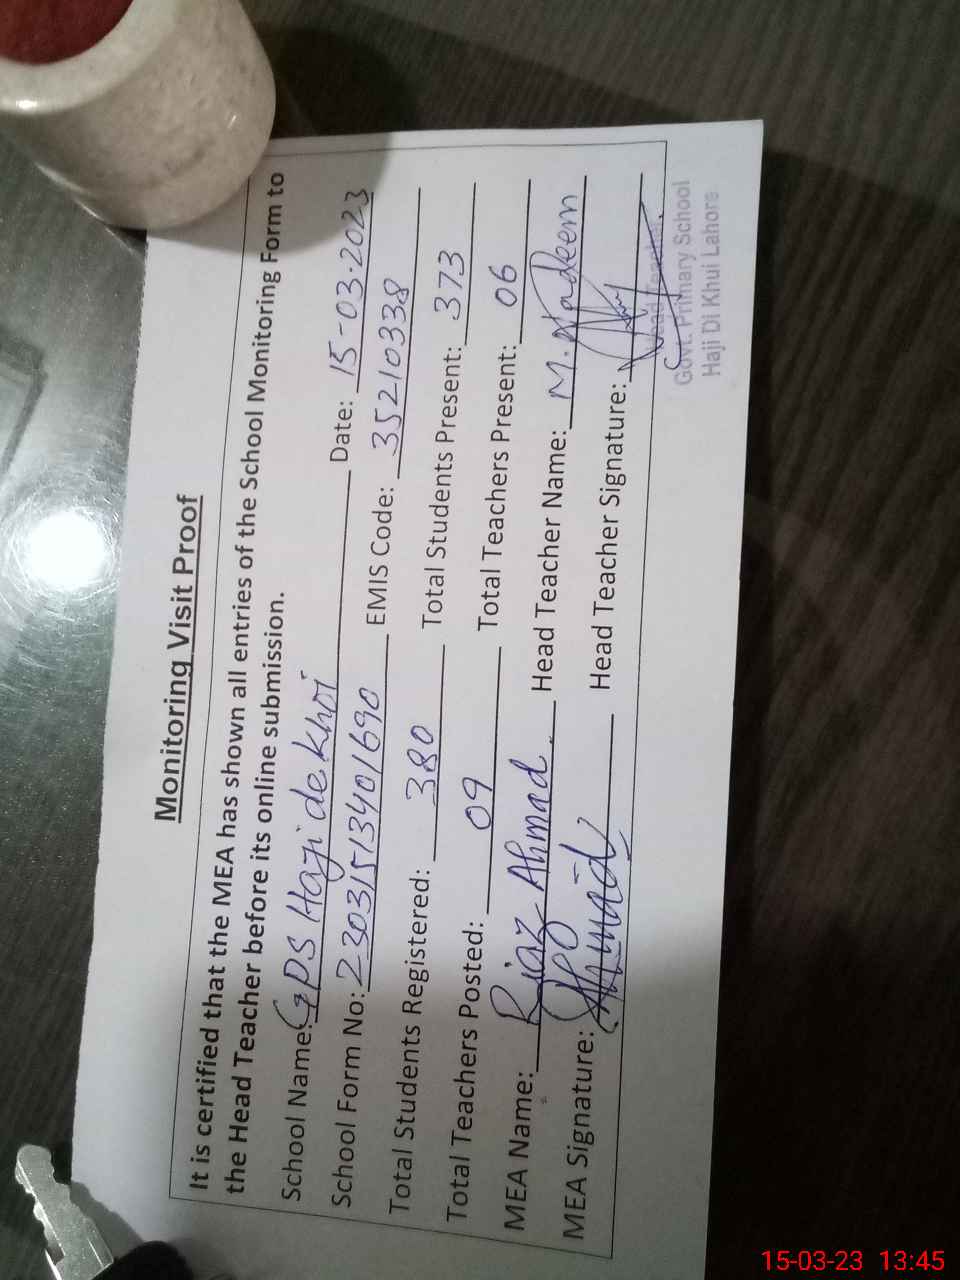 Monitoring Visit Proof
It is certified that the MEA has shown all entries of the School Monitoring Form to
the Head Teacher before its online submission.
School Name: GPS Haji de Khoi Date: 15-03-2023
School Form No: 23031513401690 EMIS Code: 35210338
Total Students Registered: 380 Total Students Present: 373
Total Teachers Posted: 09 Total Teachers Present: 06
MEA Name: Riaz Ahmad Head Teacher Name: M. Nadeem
MEA Signature: Ahmad Head Teacher Signature:
Head Teacher
Govt. Primary School
Haji Di Khui Lahore
15-03-23 13:45